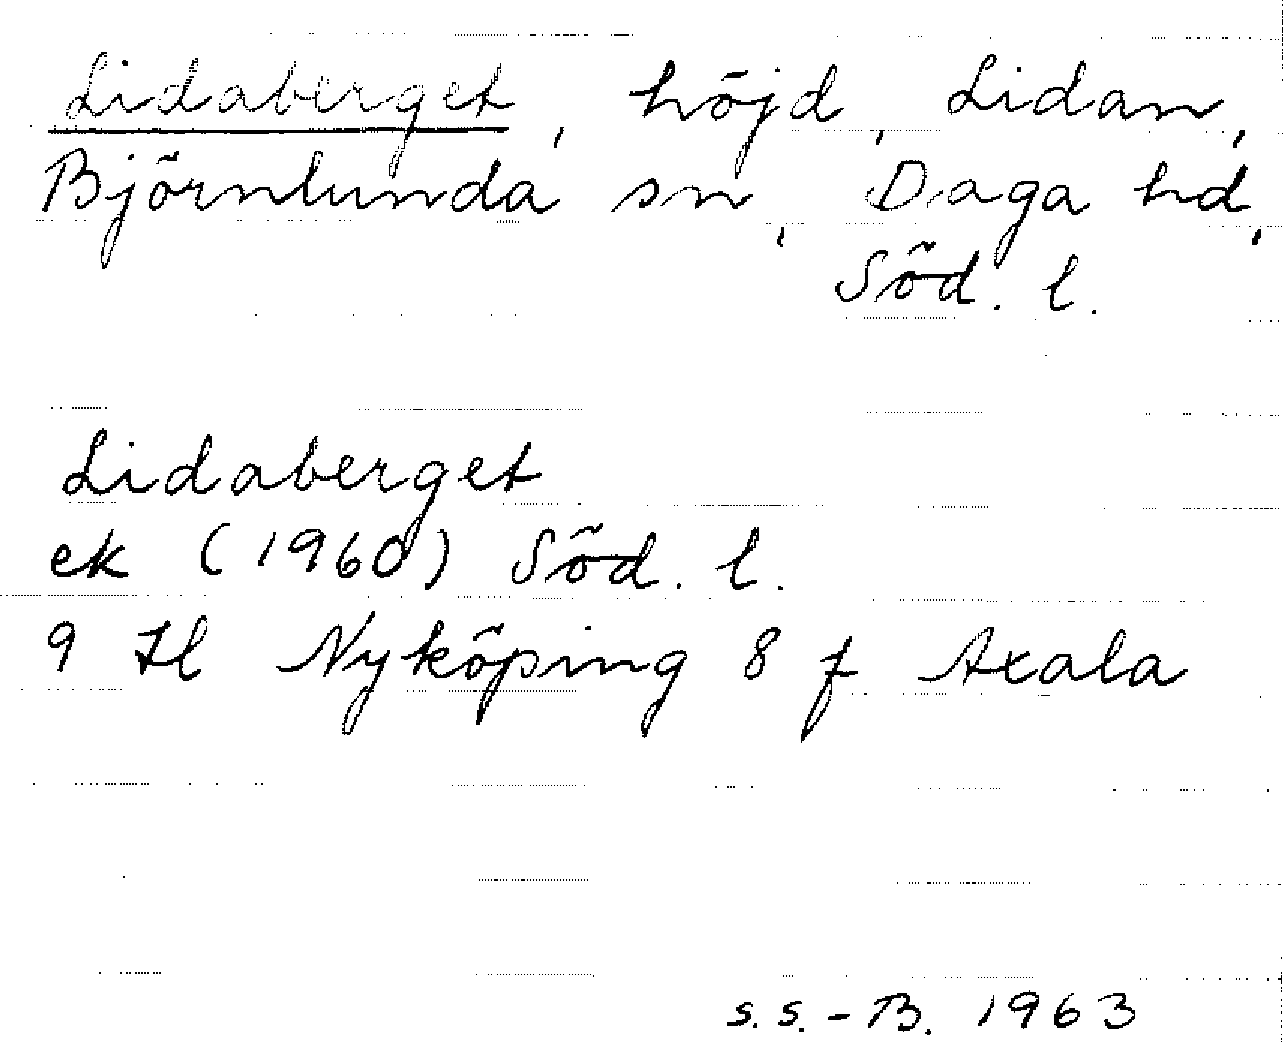 Lidaberget, höjd, Lidan,
Björnlunda sn, Daga hd,
Söd. l.
Lidaberget
ek (1960) Söd. l.
9 H Nyköping 8 f Axala
s.s.-B. 1963